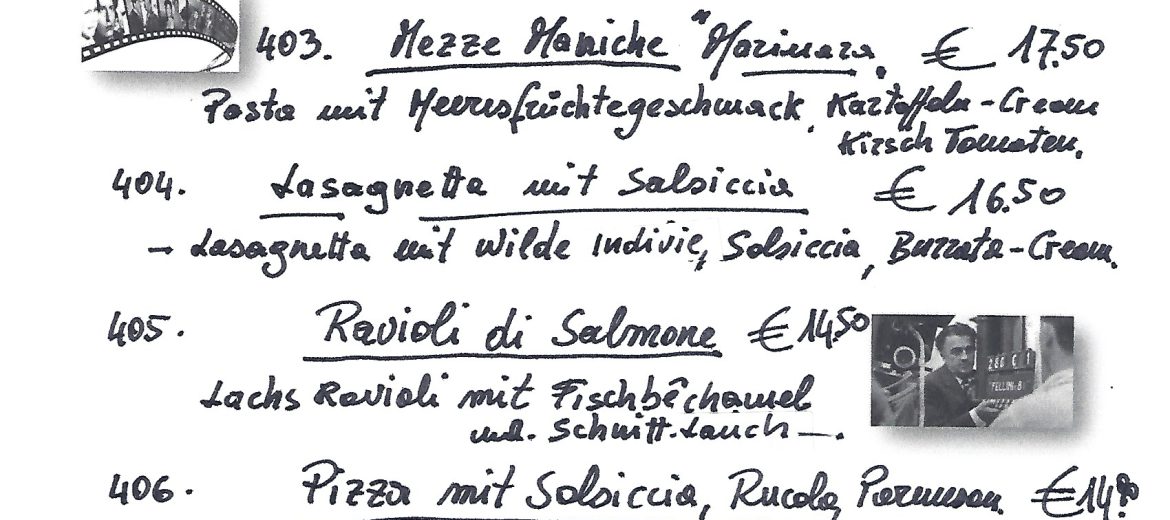 403. Mezze Maniche "Marinara, € 17.50
Pasta mit Meeresfrüchtegeschmack, Kartoffeln-Cream
Kirsch Tomaten.
404. Lasagnetta mit Salsiccia € 16.50
→ Lasagnetta mit Wilde Indivie, Salsiccia, Burrata-Cream.
405. Ravioli di Salmone € 14.50
286 C 1
FELLINI-8
Lachs Ravioli mit Fischbêchamel
und. Schnitt-Lauch —.
406. Pizza mit Salsiccia, Rucola, Parmesan. € 14.80